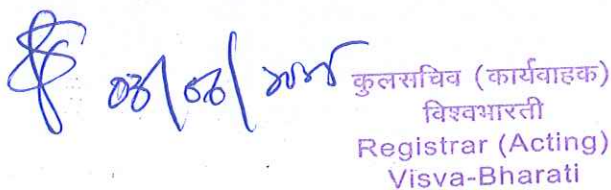 कुलसचिव (कार्यवाहक)
विश्वभारती
Registrar (Acting)
Visva-Bharati